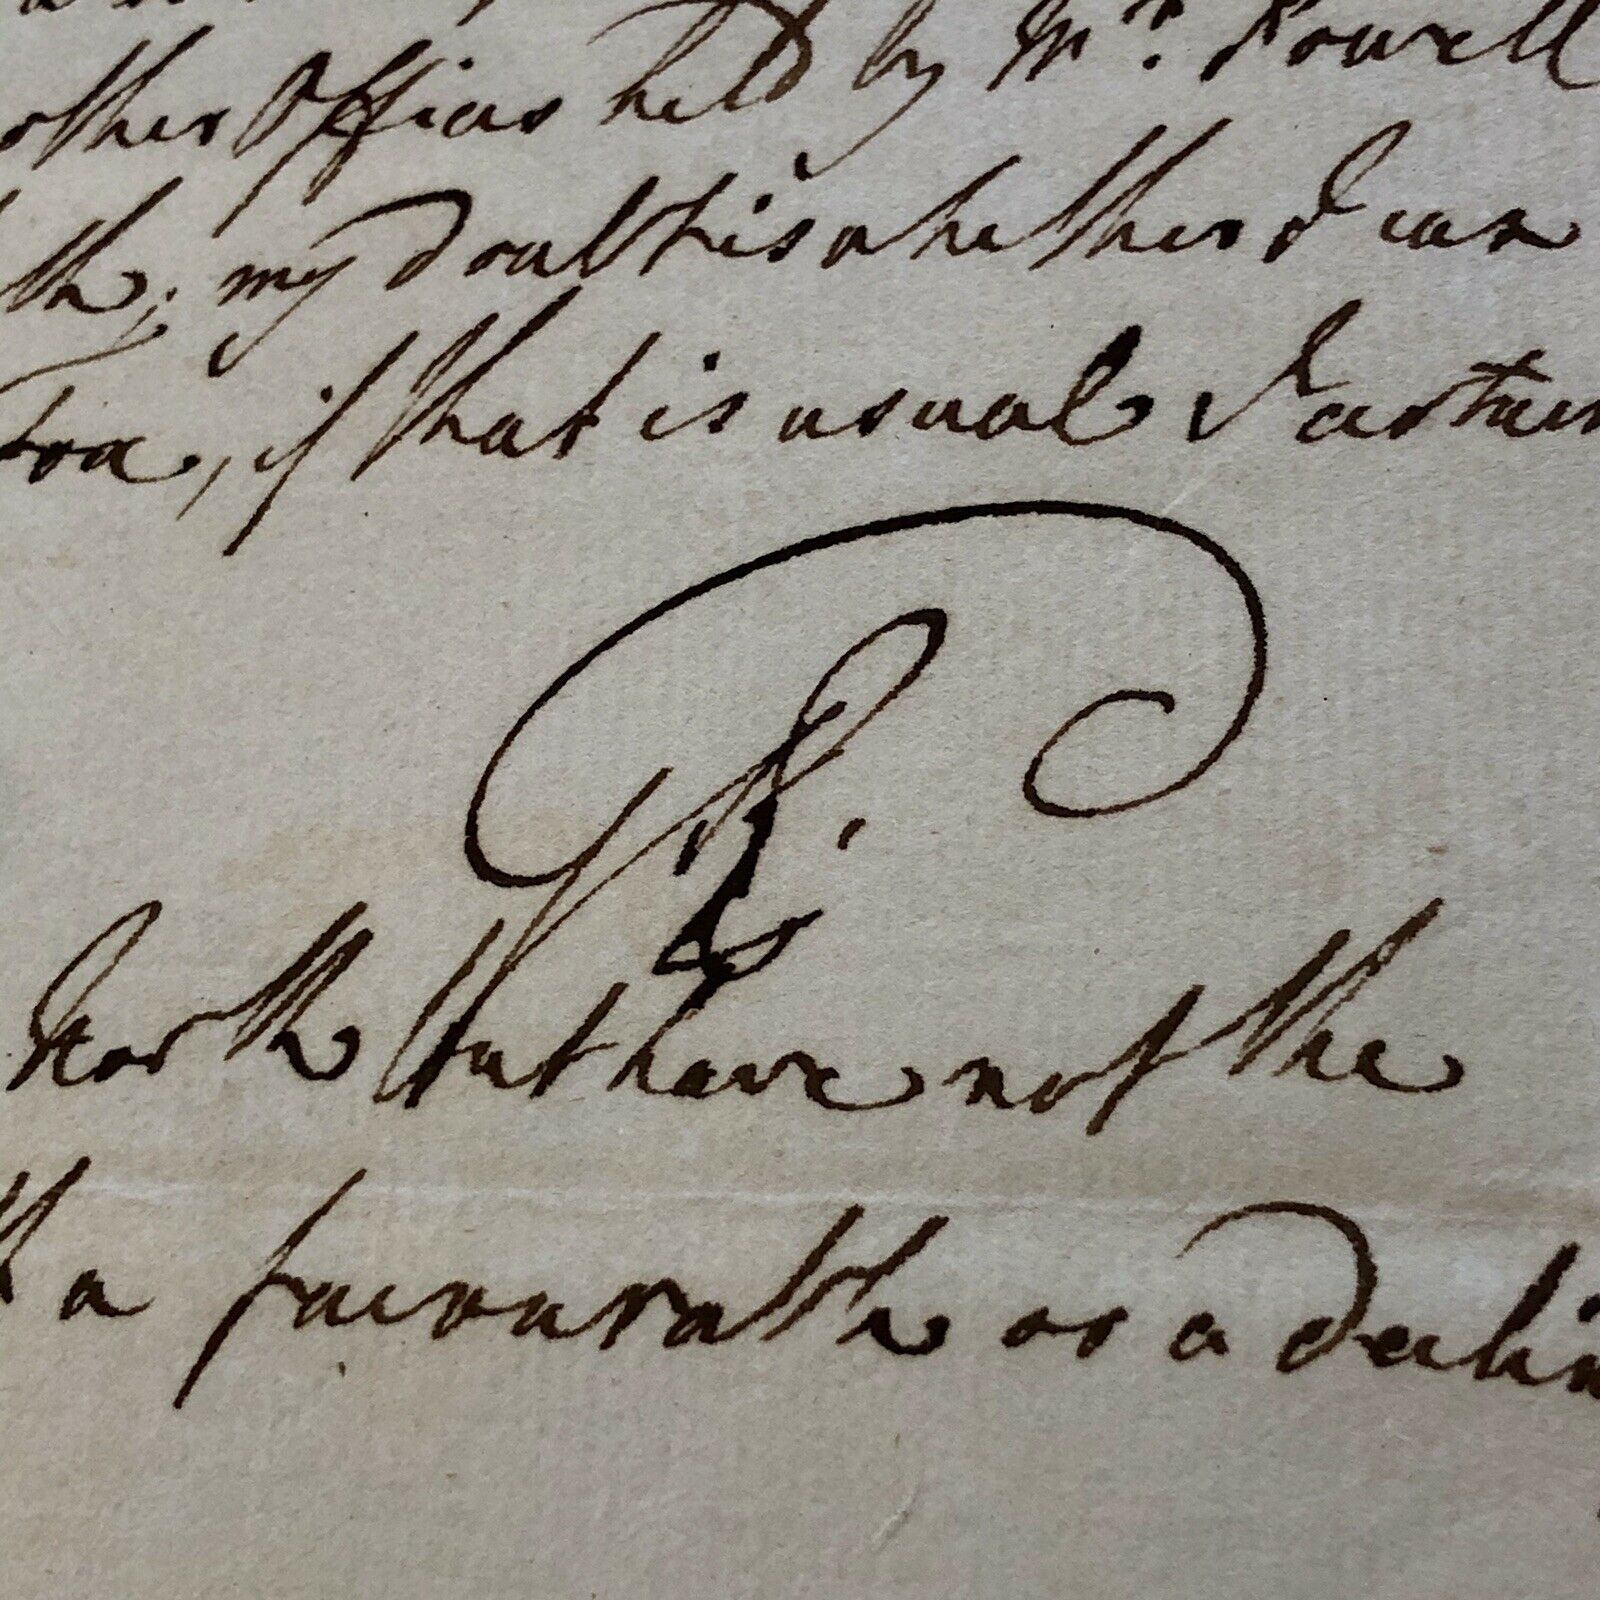 other Offices held by Mr. Powell
th; my doubt is whether I can
tra, if that is usual I certain
GR.
North but have not the
a favourable or a declin